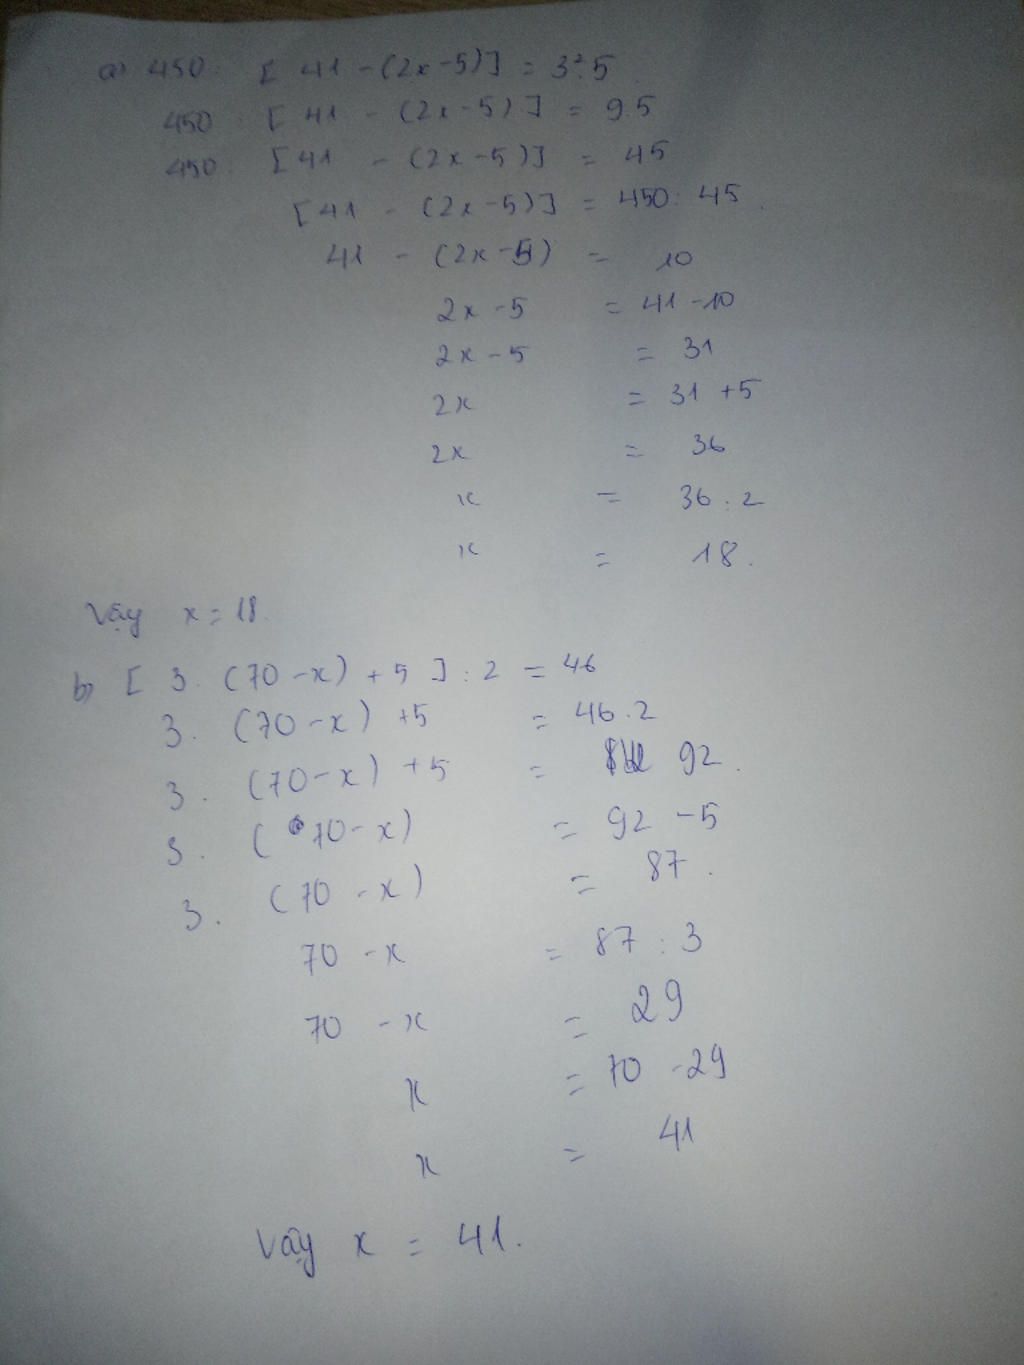 a) 450 : [ 41 - (2x - 5)] = 3².5
450 : [ 41 - (2x - 5) ] = 9.5
450 : [41 - (2x - 5)] = 45
[41 - (2x - 5)] = 450 : 45.
41 - (2x - 5) = 10
2x - 5 = 41 - 10
2x - 5 = 31
2x = 31 + 5
2x = 36
x = 36 : 2
x = 18.
Vậy x = 18.
b) [ 3. (70 - x) + 5 ] : 2 = 46
3. (70 - x) + 5 = 46.2
3. (70 - x) + 5 = 92.
3. (70 - x) = 92 - 5
3. (70 - x) = 87.
70 - x = 87 : 3
70 - x = 29
x = 70 - 29
x = 41
Vậy x = 41.